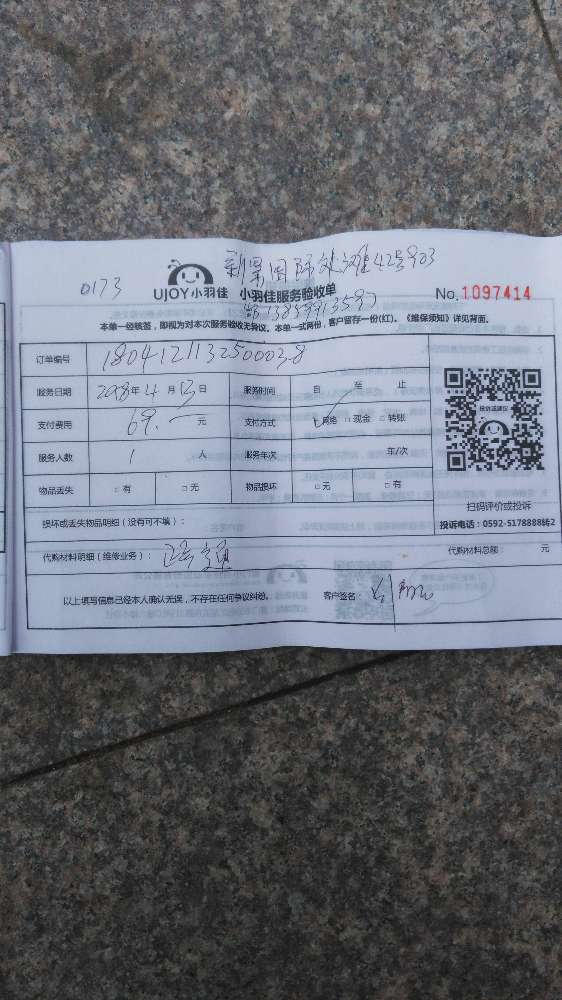 0173
UJOY小羽佳 小羽佳服务验收单
42号903
No. 1097414
本单一经核签，即视为对本次服务验收无争议。本单一式两份，客户留存一份(红)。《维保须知》详见背面。
订单编号
服务日期 2018年4月13日 服务时间 自 至 止
支付费用 69.一元 支付方式 ☑网络 □现金 □转账
服务人数 1 人 服务年次 年/次
物品丢失 □有 □无 物品损坏 □无 □有
投诉或建议
扫码评价或投诉
投诉电话：0592-5178888转2
损坏或丢失物品明细（没有可不填）：
代购材料明细（维修业务）： 代购材料总额： 元
以上填写信息已经本人确认无误，不存在任何争议纠纷。 客户签名：